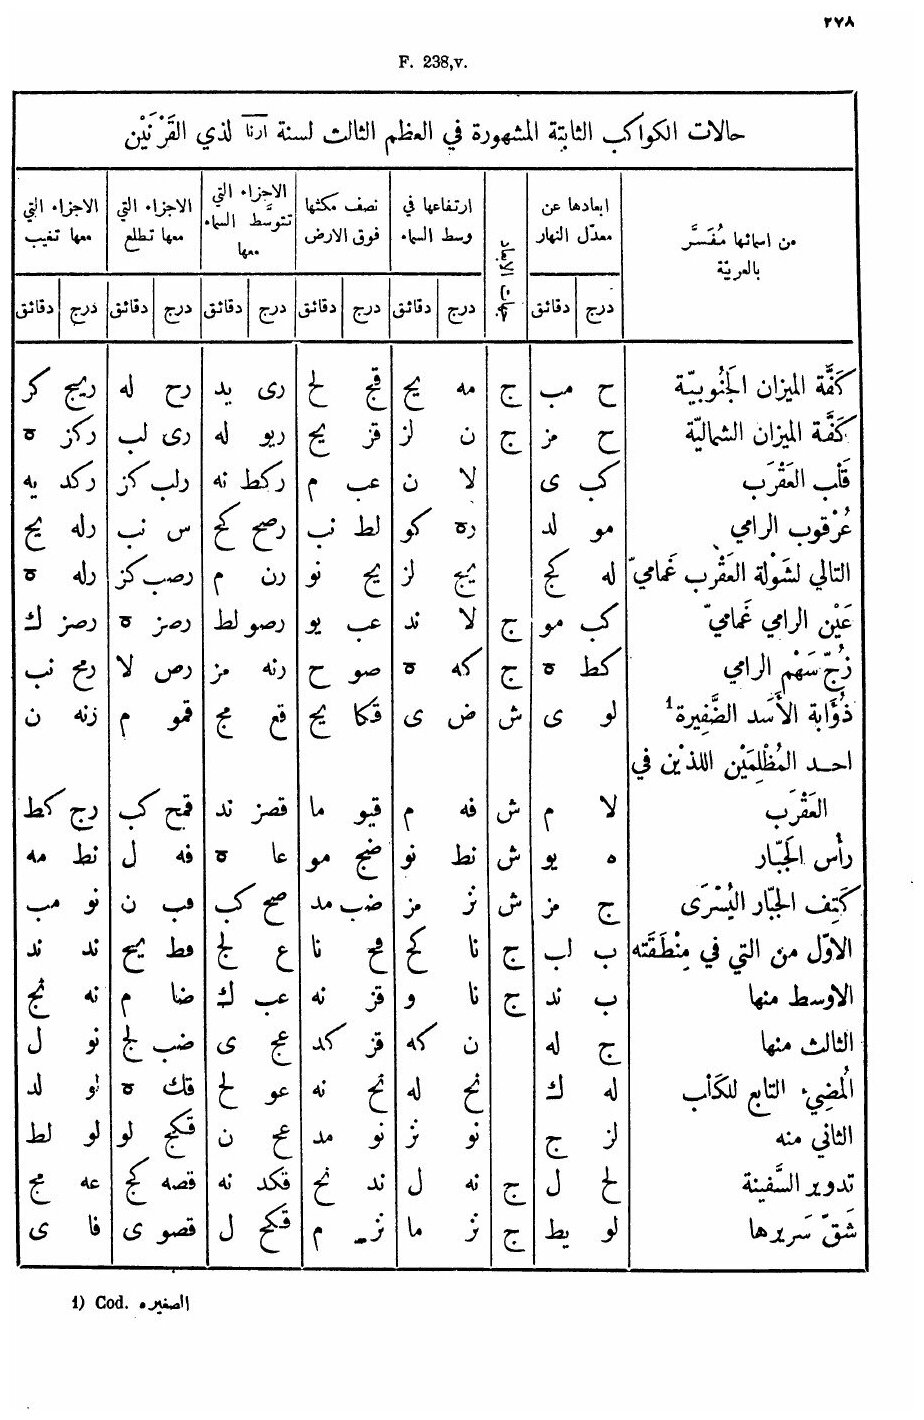 ٢٧٨
F. 238,v.
حالات الكواكب الثابتة المشهورة في العظم الثالث لسنة ارنا لذي القَرْنَيْن
من اسمائها مُفَسَّر بالعربيّة | ابعادها عن معدّل النهار | جهات الابعاد | ارتفاعها في وسط السماء | نصف مكثها فوق الارض | الاجزاء التي تتوسَّط السماء معها | الاجزاء التي معها تطلع | الاجزاء التي معها تغيب
درج دقائق | درج دقائق | درج دقائق | درج دقائق | درج دقائق | درج دقائق
كَفَّة الميزان الجَنُوبيّة ح مب ج مه يح قيج لح رى يد رح له رييج كر
كَفَّة الميزان الشماليّة ح مز ج ن لز قز يح ريو له رى لب ركز ه
قَلْب العَقْرَب كب ى لا ن عب م ركط نه رلب كز ركد يه
عُرْقوب الرامي مو لد ره كو لط نب رصح كح س نب رله يح
التالي لشَولة العَقْرب غَمامىّ له كج ييج لز يح نو رن م رصب كز رله ه
عَيْن الرامي غَمامىّ كب مو ج لا ند عب يو رصو لط رصز ه رصز ك
زُجّ سَهْم الرامي كط ه ج كه ه صو ح رنه مز رص لا رمح نب
ذُؤَابة الأَسَد الضَّفِيرة¹ لو ى ش ض ى قكا يح قع مج قمو م زنه ن
احد المُظْلِمَيْن اللذيْن في
العَقْرَب لا م ش فه م قيو ما قصز ند قمح كب رج كط
رأس الجَبّار ه يو ش نط نو ضج مو عا ه فه ل نط مه
كَتِف الجبّار اليُسْرَى ج مز ش نز مز ضب مد صح كب فب ن نو مب
الاوّل من التي في مِنْطَقَته ب لب ج نا كح فح نا ع لج فط يح ند ند
الاوسط منها ب ند ج نا و قز نه عب ك ضا م نه نج
الثالث منها ج له ن كه قز كد عج ى ضب لج نو ل
المُضِيء التابع للكَلْب له ك نح له نح نه عو لح قك ه لو لد
الثاني منه لز ج نو نز نو مد عح ن قكج لو لو لط
تدوير السَّفينة لح ل ج نه ل ند نح قكد نه قصه كج عه مج
شَقّ سَريرها لو يط ج نز ما نز م قكح ل قصو ى فا ى
1) Cod. الصغيره